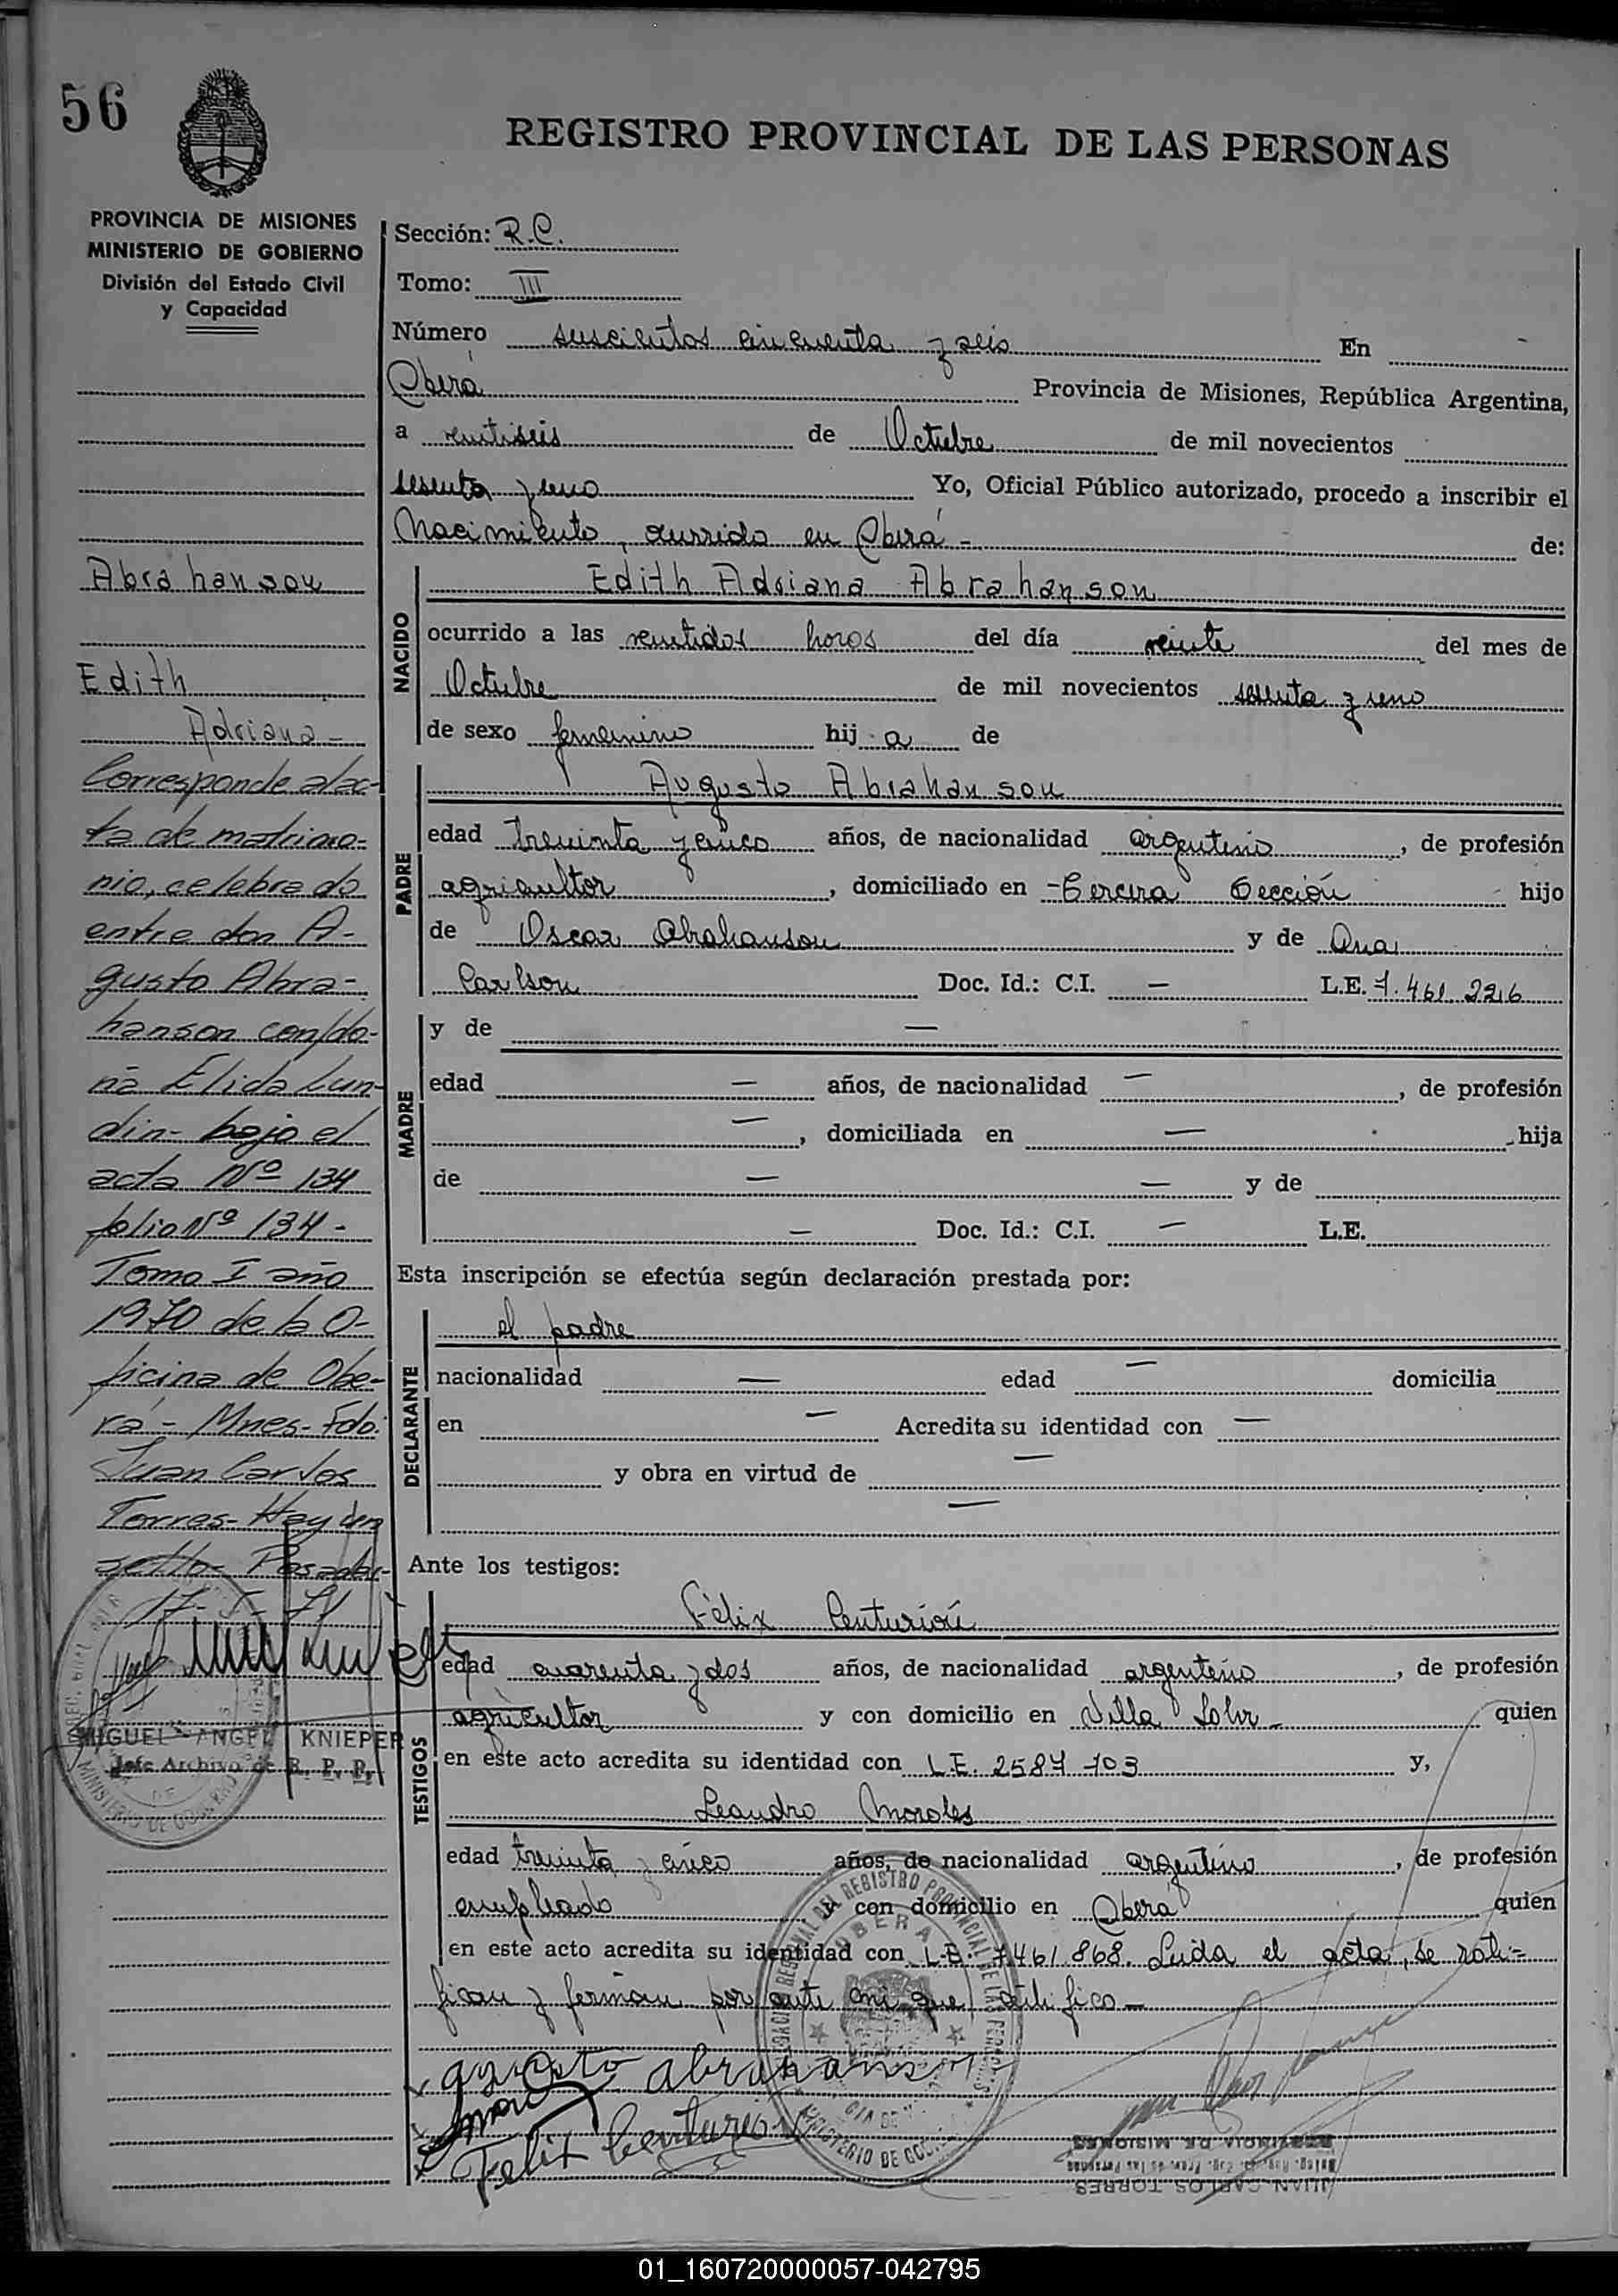 56
REGISTRO PROVINCIAL DE LAS PERSONAS
PROVINCIA DE MISIONES
MINISTERIO DE GOBIERNO
División del Estado Civil
y Capacidad
Abrahanson
Edith
Adriana -
Corresponde al ac-
ta de matrimo-
nio, celebrado
entre don A-
gusto Abra-
hanson con do-
ña Elida Lun-
din- bajo el
acta Nº 134
folio Nº 134 -
Tomo I año
1970 de la O-
ficina de Obe-
rá - Mnes- Fdo:
Juan Carlos
Torres- Hay un
sello- Posadas-
MIGUEL ANGEL KNIEPER
Jefe Archivo de R. P. P.
Sección: R.C.
Tomo: III
Número seiscientos cincuenta y seis En
Oberá Provincia de Misiones, República Argentina,
a veintiseis de Octubre de mil novecientos
sesenta y uno Yo, Oficial Público autorizado, procedo a inscribir el
Nacimiento, ocurrido en Oberá - de:
NACIDO
Edith Adriana Abrahanson
ocurrido a las veintidos horas del día veinte del mes de
Octubre de mil novecientos sesenta y uno
de sexo femenino hij a de
PADRE
Augusto Abrahanson
edad treinta y cinco años, de nacionalidad argentino, de profesión
agricultor, domiciliado en -Tercera Sección hijo
de Oscar Abrahanson y de Ana
Carlson Doc. Id.: C.I. — L.E. 7.461.226
MADRE
y de —
edad — años, de nacionalidad —, de profesión
—, domiciliada en — hija
de — — y de
— Doc. Id.: C.I. — L.E.
Esta inscripción se efectúa según declaración prestada por:
DECLARANTE
el padre
nacionalidad — edad — domicilia
en — Acredita su identidad con —
y obra en virtud de —
—
Ante los testigos:
TESTIGOS
Félix Centurión
edad cuarenta y dos años, de nacionalidad argentino, de profesión
agricultor y con domicilio en Villa quien
en este acto acredita su identidad con L.E. 2587 703 y,
Leandro Morales
edad treinta y cinco años, de nacionalidad argentino, de profesión
empleado y con domicilio en Oberá quien
en este acto acredita su identidad con L.E. 7461868. Leida el acta, se rati-
fican y firman por ante mí que certifico -
agusto abrahanson
Felix Centurion
PROVINCIA DE MISIONES
JUAN CARLOS TORRES
01_160720000057-042795